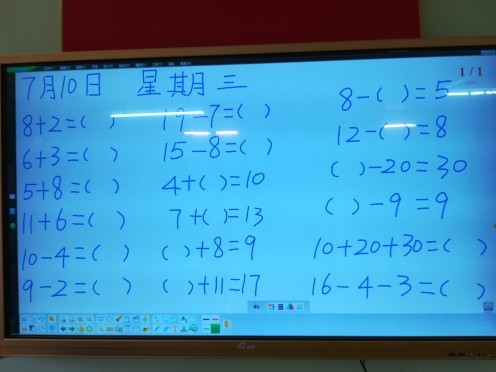 7月10日 星期三
1/1
8+2=( )
6+3=( )
5+8=( )
11+6=( )
10-4=( )
9-2=( )
19-7=( )
15-8=( )
4+( )=10
7+( )=13
( )+8=9
( )+11=17
8-( )=5
12-( )=8
( )-20=30
( )-9=9
10+20+30=( )
16-4-3=( )